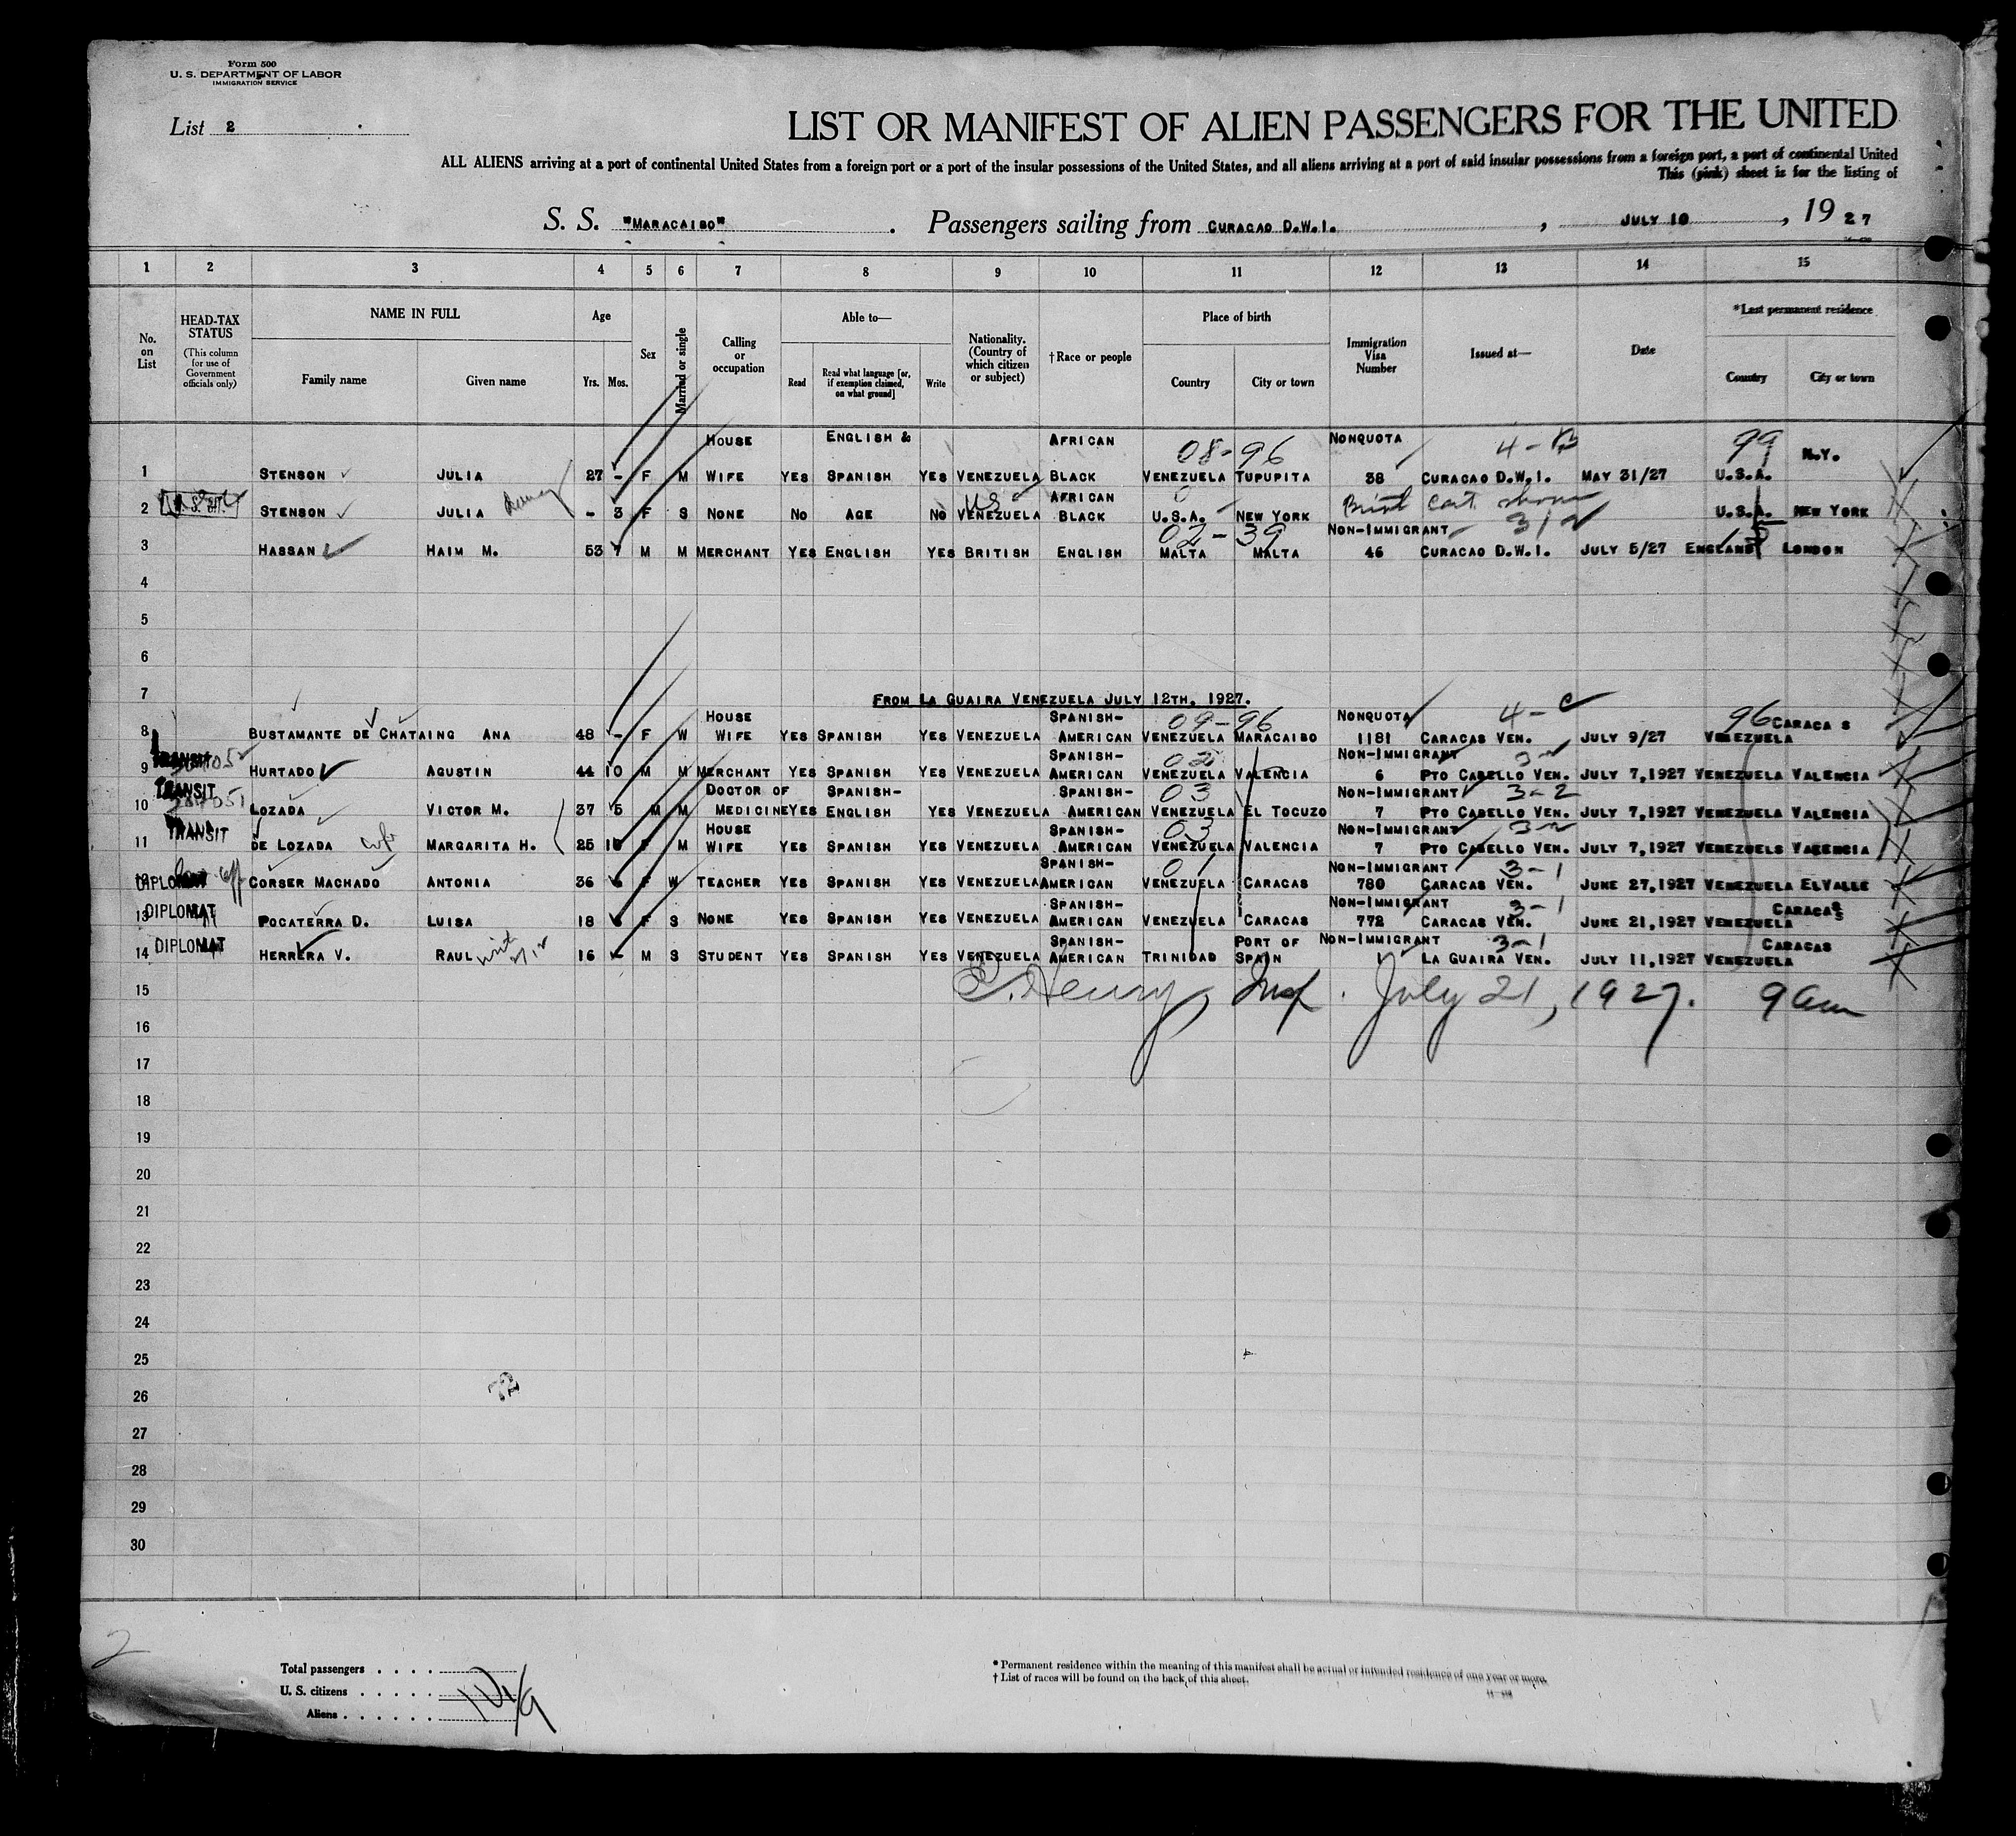 Form 500
U. S. DEPARTMENT OF LABOR
IMMIGRATION SERVICE
List 2
LIST OR MANIFEST OF ALIEN PASSENGERS FOR THE UNITED
ALL ALIENS arriving at a port of continental United States from a foreign port or a port of the insular possessions of the United States, and all aliens arriving at a port of said insular possessions from a foreign port, a port of continental United
This (pink) sheet is for the listing of
S. S. "MARACAIBO" . Passengers sailing from CURACAO D.W.I. , JULY 10 , 19 27
1 2 3 4 5 6 7 8 9 10 11 12 13 14 15
No. on List
HEAD-TAX STATUS (This column for use of Government officials only)
NAME IN FULL
Family name Given name
Age
Yrs. Mos.
Sex
Married or single
Calling or occupation
Able to—
Read Read what language [or, if exemption claimed, on what ground] Write
Nationality. (Country of which citizen or subject)
† Race or people
Place of birth
Country City or town
Immigration Visa Number
Issued at—
Date
*Last permanent residence
Country City or town
HOUSE ENGLISH & AFRICAN 08-96 NONQUOTA 99 N.Y.
1 STENSON JULIA 27 - F M WIFE YES SPANISH YES VENEZUELA BLACK VENEZUELA TUPUPITA 38 CURACAO D.W.I. MAY 31/27 U.S.A.
AFRICAN US
2 STENSON JULIA - 3 F S NONE NO AGE NO VENEZUELA BLACK U.S.A. NEW YORK U.S.A. NEW YORK
02-39 NON-IMMIGRANT
3 HASSAN HAIM M. 53 7 M M MERCHANT YES ENGLISH YES BRITISH ENGLISH MALTA MALTA 46 CURACAO D.W.I. JULY 5/27 ENGLAND LONDON
4
5
6
7 FROM LA GUAIRA VENEZUELA JULY 12TH, 1927.
HOUSE SPANISH- 09-96 NONQUOTA 4-C 96 CARACAS
8 BUSTAMANTE DE CHATAING ANA 48 - F W WIFE YES SPANISH YES VENEZUELA AMERICAN VENEZUELA MARACAIBO 1181 CARACAS VEN. JULY 9/27 VENEZUELA
TRANSIT SPANISH- NON-IMMIGRANT
9 HURTADO AGUSTIN 44 10 M M MERCHANT YES SPANISH YES VENEZUELA AMERICAN VENEZUELA VALENCIA 6 PTO CABELLO VEN. JULY 7,1927 VENEZUELA VALENCIA
TRANSIT DOCTOR OF SPANISH- SPANISH- 03 NON-IMMIGRANT 3-2
10 LOZADA VICTOR M. 37 5 M M MEDICINE YES ENGLISH YES VENEZUELA AMERICAN VENEZUELA EL TOCUZO 7 PTO CABELLO VEN. JULY 7,1927 VENEZUELA VALENCIA
TRANSIT HOUSE SPANISH- 03 NON-IMMIGRANT
11 DE LOZADA wife MARGARITA H. 25 10 F M WIFE YES SPANISH YES VENEZUELA AMERICAN VENEZUELA VALENCIA 7 PTO CABELLO VEN. JULY 7,1927 VENEZUELS VALENCIA
SPANISH- 01 NON-IMMIGRANT 3-1
12 DIPLOMAT CORSER MACHADO ANTONIA 36 F W TEACHER YES SPANISH YES VENEZUELA AMERICAN VENEZUELA CARACAS 780 CARACAS VEN. JUNE 27,1927 VENEZUELA ELVALLE
DIPLOMAT SPANISH- NON-IMMIGRANT 3-1 CARACAS
13 POCATERRA D. LUISA 18 F S NONE YES SPANISH YES VENEZUELA AMERICAN VENEZUELA CARACAS 772 CARACAS VEN. JUNE 21,1927 VENEZUELA
DIPLOMAT SPANISH- PORT OF NON-IMMIGRANT 3-1 CARACAS
14 HERRERA V. RAUL 16 - M S STUDENT YES SPANISH YES VENEZUELA AMERICAN TRINIDAD SPAIN 1 LA GUAIRA VEN. JULY 11,1927 VENEZUELA
15 Henry, Insp. July 21, 1927. 9 am
16
17
18
19
20
21
22
23
24
25
26
27
28
29
30
2
Total passengers . . . .
U. S. citizens . . . . .
Aliens . . . . . .
* Permanent residence within the meaning of this manifest shall be actual or intended residence of one year or more.
† List of races will be found on the back of this sheet.